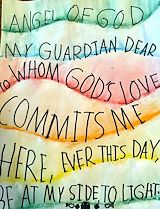 ANGEL OF GOD
MY GUARDIAN DEAR
TO WHOM GOD'S LOVE
COMMITS ME
HERE, EVER THIS DAY,
BE AT MY SIDE TO LIGHT